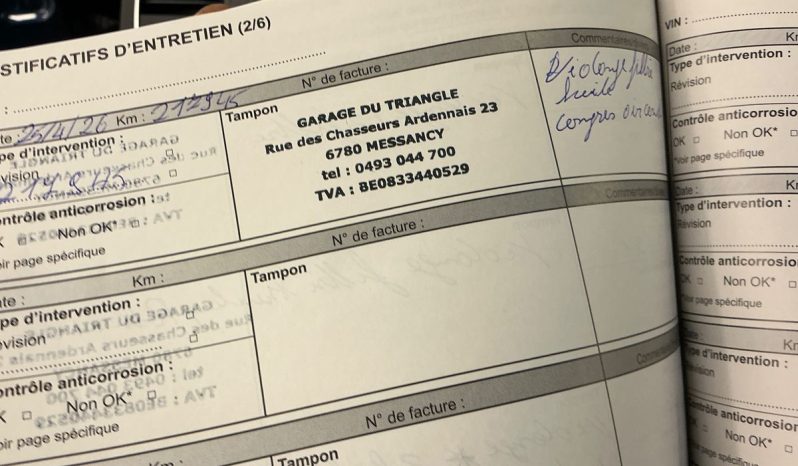 STIFICATIFS D'ENTRETIEN (2/6)
te : 25/4/26 Km : 212945 N° de facture : Commentaires
pe d'intervention :
vision
ntrôle anticorrosion :
K Non OK* :
oir page spécifique
Tampon
GARAGE DU TRIANGLE
Rue des Chasseurs Ardennais 23
6780 MESSANCY
tel : 0493 044 700
TVA : BE0833440529
Vidange filtre
huile
ate : Km : N° de facture : Commentaires
pe d'intervention :
vision
ontrôle anticorrosion :
K Non OK*
oir page spécifique
Tampon
N° de facture :
Km :
Tampon
VIN :
Date : Km
Type d'intervention :
Révision
Contrôle anticorrosio
OK Non OK*
*Voir page spécifique
Date : Km
Type d'intervention :
Révision
Contrôle anticorrosio
OK Non OK*
*Voir page spécifique
Km
pe d'intervention :
vision
ontrôle anticorrosion
Non OK*
page spécifique